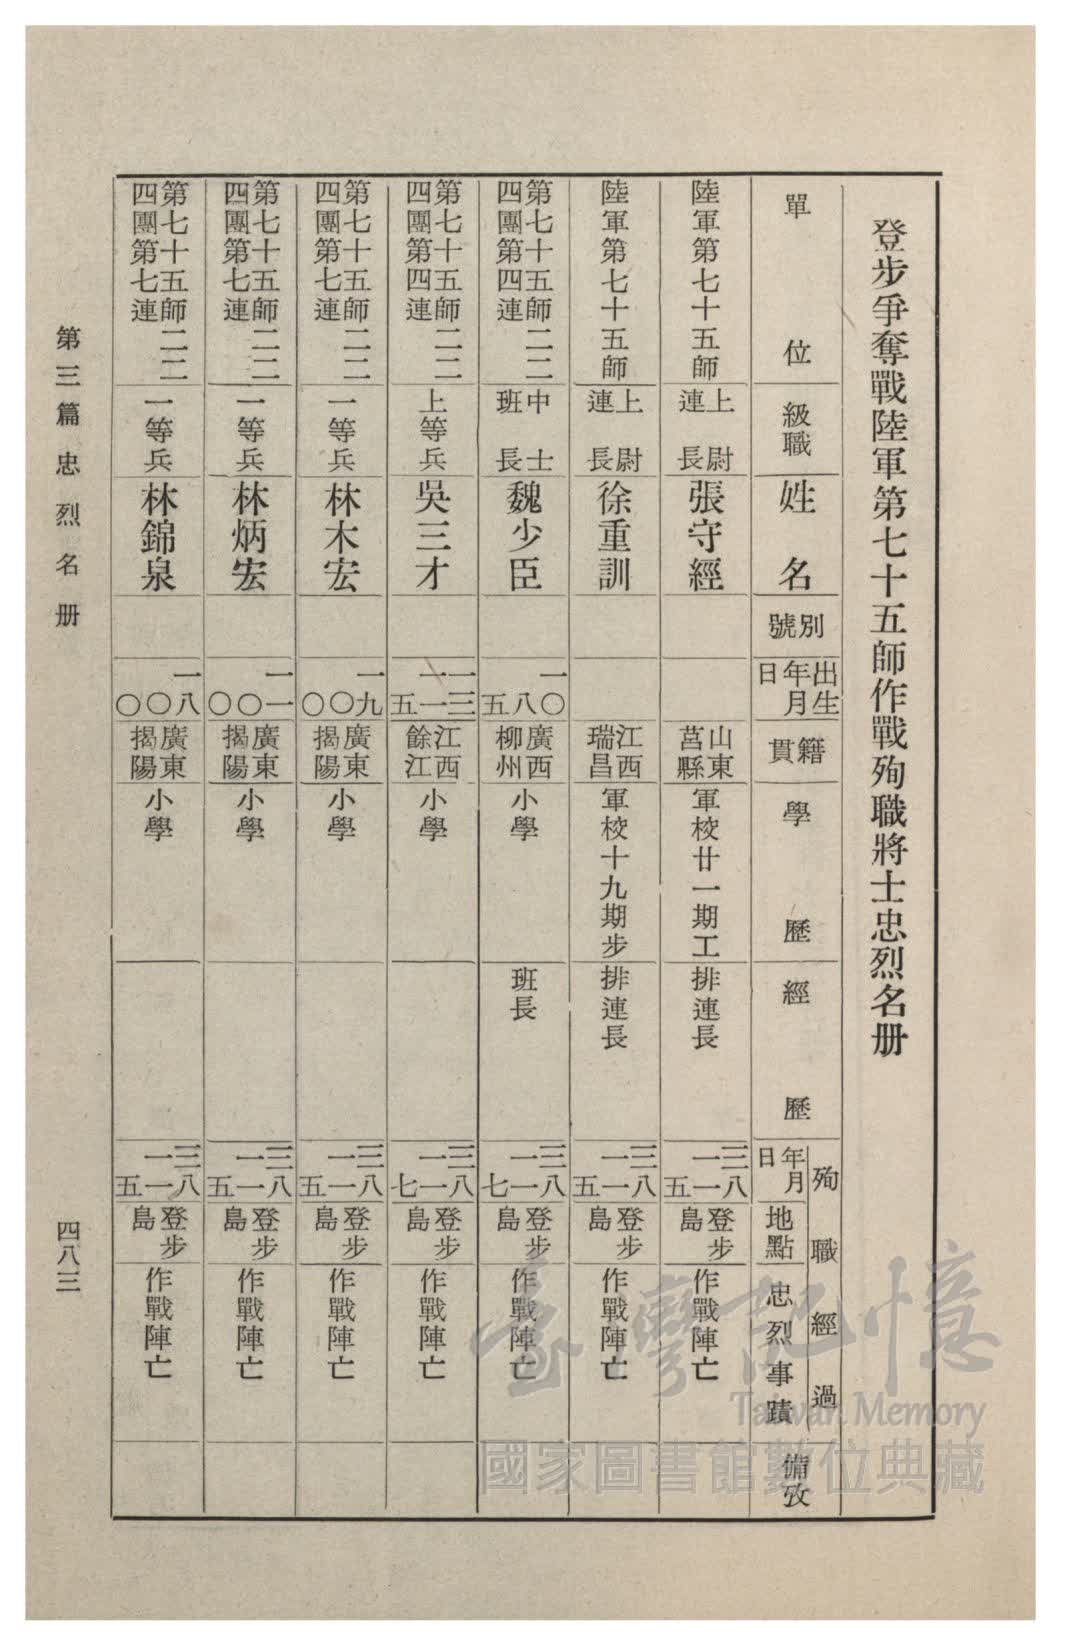 登步爭奪戰陸軍第七十五師作戰殉職將士忠烈名册
單位
級職
姓名
別號
出生年月日
籍貫
學歷
經歷
殉職經過
年月日
地點
忠烈事蹟
備攷
陸軍第七十五師
上尉
連長
張守經
山東
莒縣
軍校廿一期工
排連長
三八
一一
五
登步
島
作戰陣亡
陸軍第七十五師
上尉
連長
徐重訓
江西
瑞昌
軍校十九期步
排連長
三八
一一
五
登步
島
作戰陣亡
第七十五師二二
四團第四連
中士
班長
魏少臣
一〇
八
五
廣西
柳州
小學
班長
三八
一一
七
登步
島
作戰陣亡
第七十五師二二
四團第四連
上等兵
吳三才
一三
一
一五
江西
餘江
小學
三八
一一
七
登步
島
作戰陣亡
第七十五師二二
四團第七連
一等兵
林木宏
一九
〇
〇
廣東
揭陽
小學
三八
一一
五
登步
島
作戰陣亡
第七十五師二二
四團第七連
一等兵
林炳宏
一一
〇
〇
廣東
揭陽
小學
三八
一一
五
登步
島
作戰陣亡
第七十五師二二
四團第七連
一等兵
林錦泉
一八
〇
〇
廣東
揭陽
小學
三八
一一
五
登步
島
作戰陣亡
第三篇 忠烈名册
四八三
臺灣記憶
Taiwan Memory
國家圖書館數位典藏